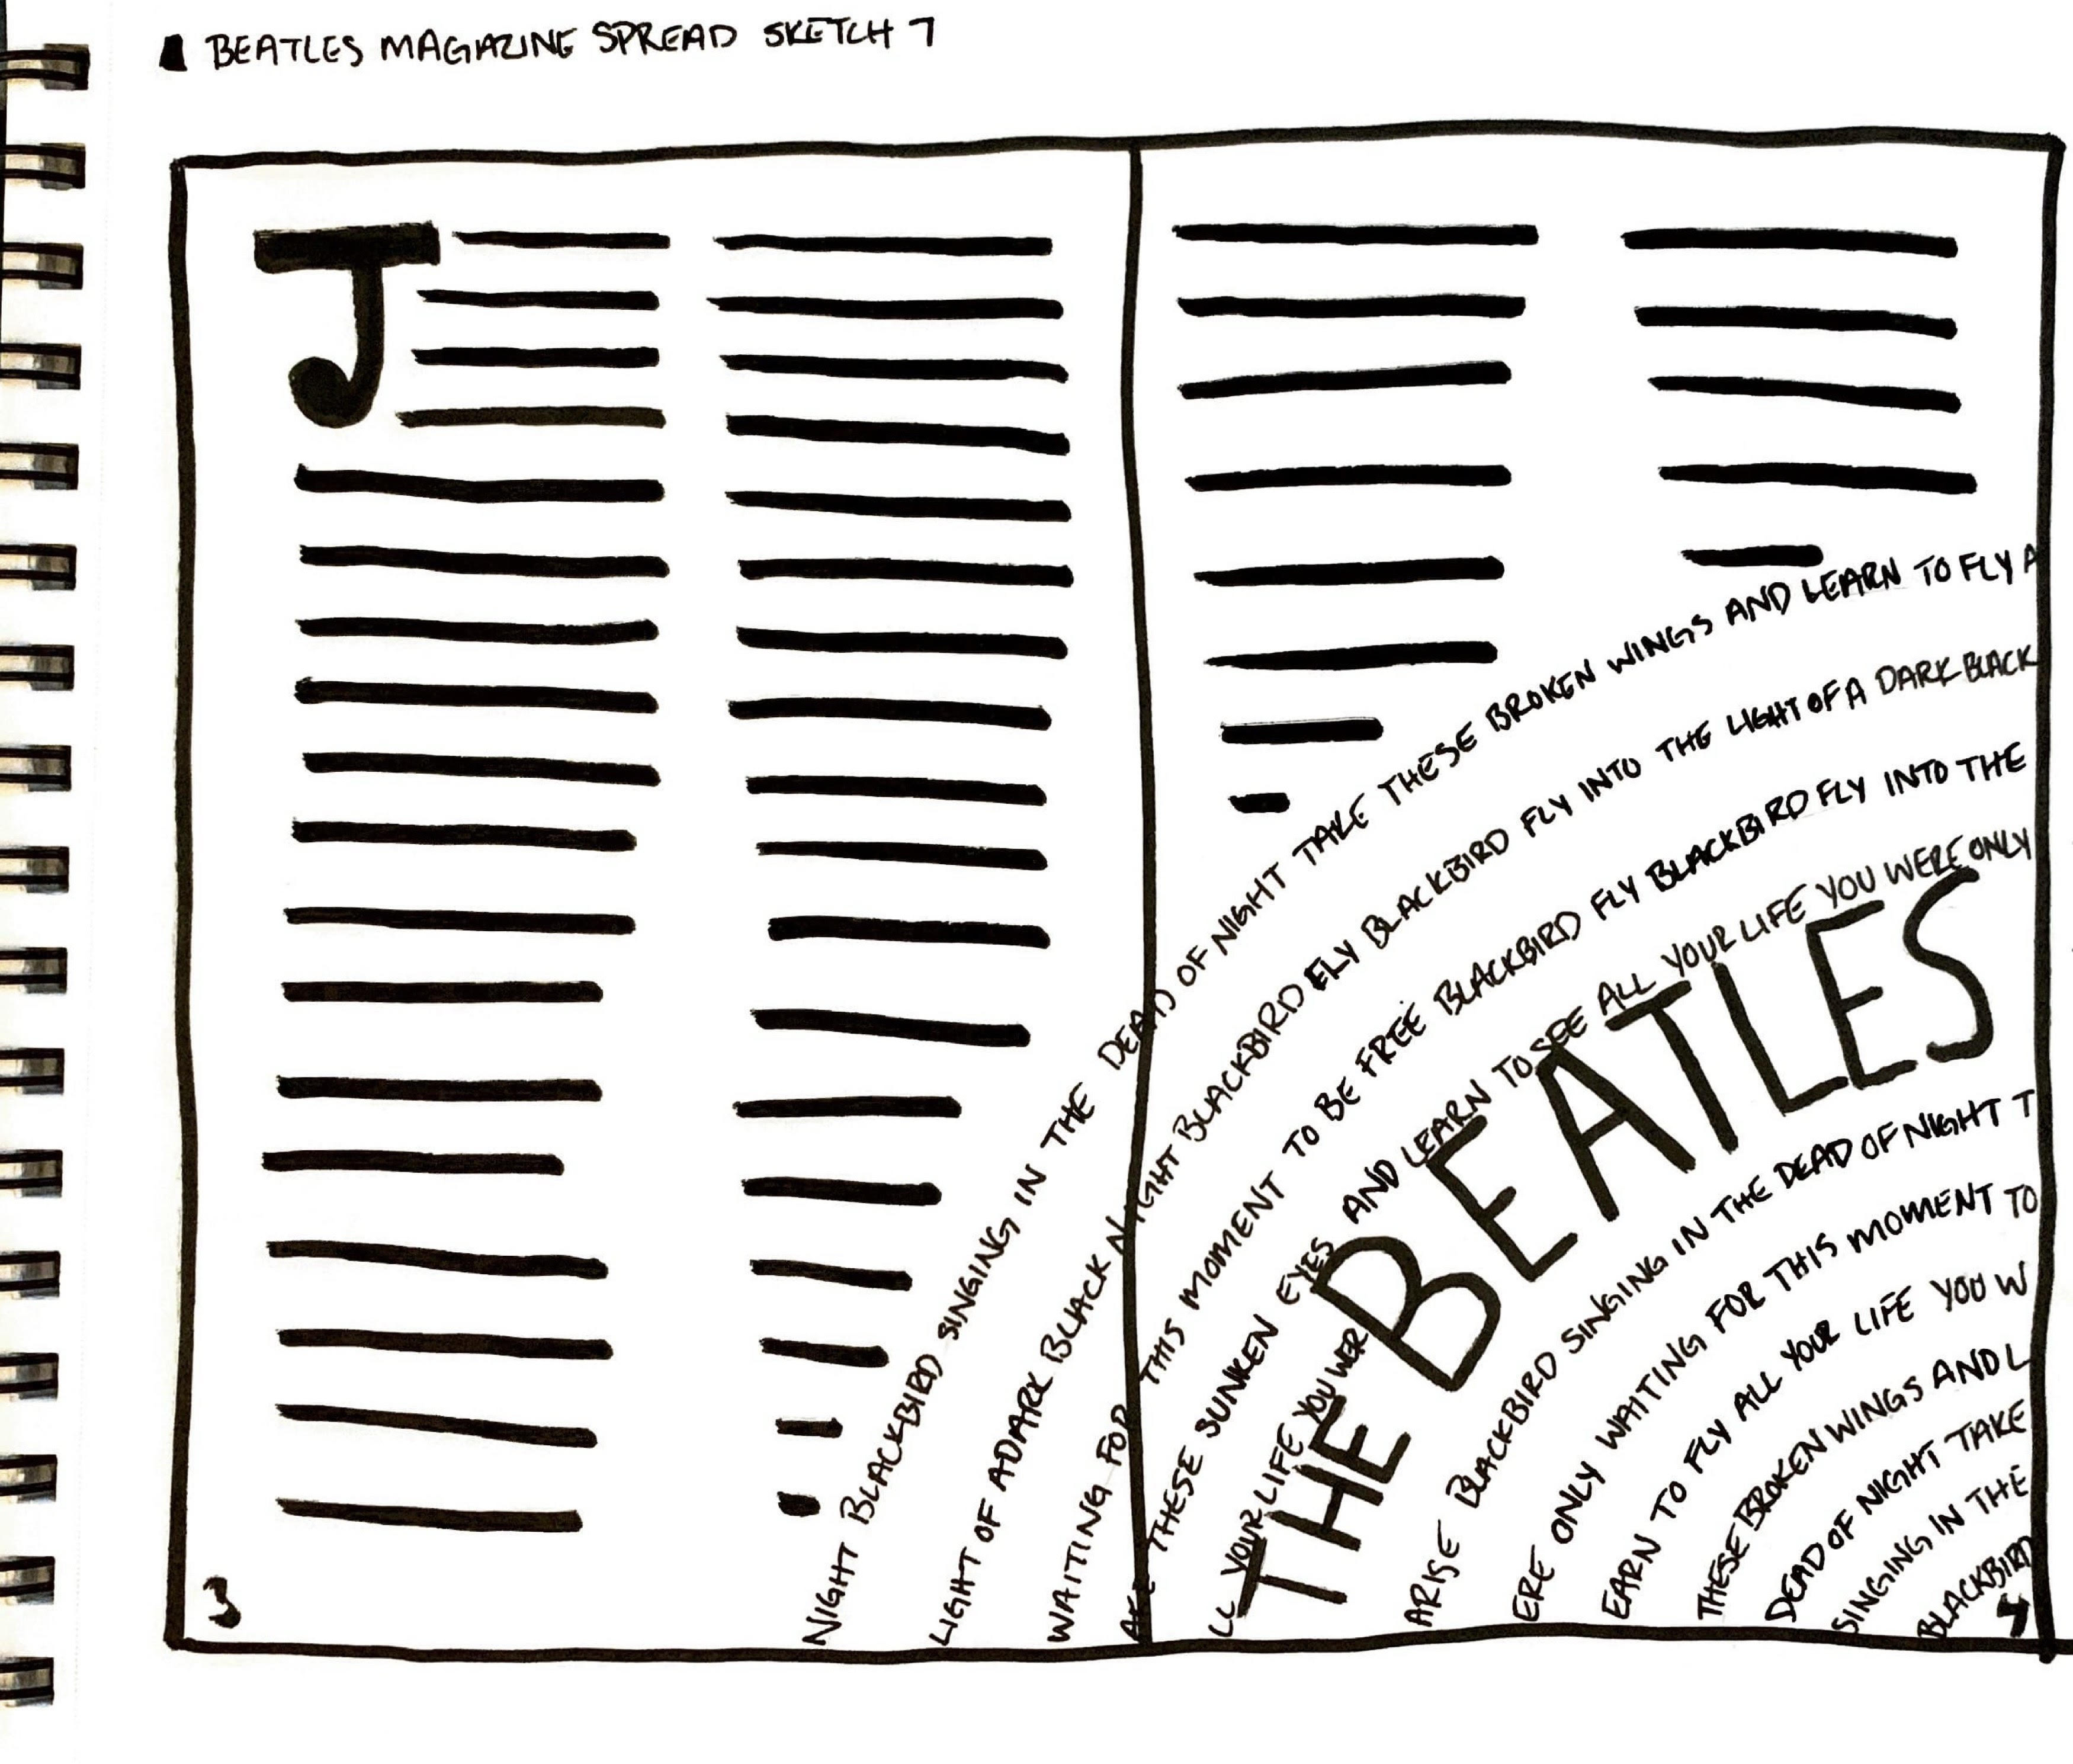 BEATLES MAGAZINE SPREAD SKETCH 7
J
NIGHT BLACKBIRD SINGING IN THE DEAD OF NIGHT TAKE THESE BROKEN WINGS AND LEARN TO FLY A
LIGHT OF A DARK BLACK NIGHT BLACKBIRD FLY BLACKBIRD FLY INTO THE LIGHT OF A DARK BLACK
WAITING FOR THIS MOMENT TO BE FREE BLACKBIRD FLY BLACKBIRD FLY INTO THE
THESE SUNKEN EYES AND LEARN TO SEE ALL YOUR LIFE YOU WERE ONLY
LL YOUR LIFE YOU WER
THE BEATLES
ARISE BLACKBIRD SINGING IN THE DEAD OF NIGHT T
ERE ONLY WAITING FOR THIS MOMENT TO
EARN TO FLY ALL YOUR LIFE YOU W
THESE BROKEN WINGS AND L
DEAD OF NIGHT TAKE
SINGING IN THE
BLACKBIRD
3
4